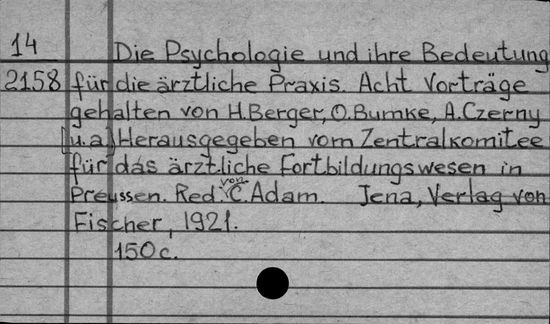 14 Die Psychologie und ihre Bedeutung
2158 für die ärztliche Praxis. Acht Vorträge
gehalten von H. Berger, O. Bumke, A. Czerny
[u.a.] Herausgegeben vom Zentralkomitee
für das ärztliche Fortbildungswesen in
Preussen. Red. von C. Adam. Jena, Verlag von
Fischer, 1921.
150 c.